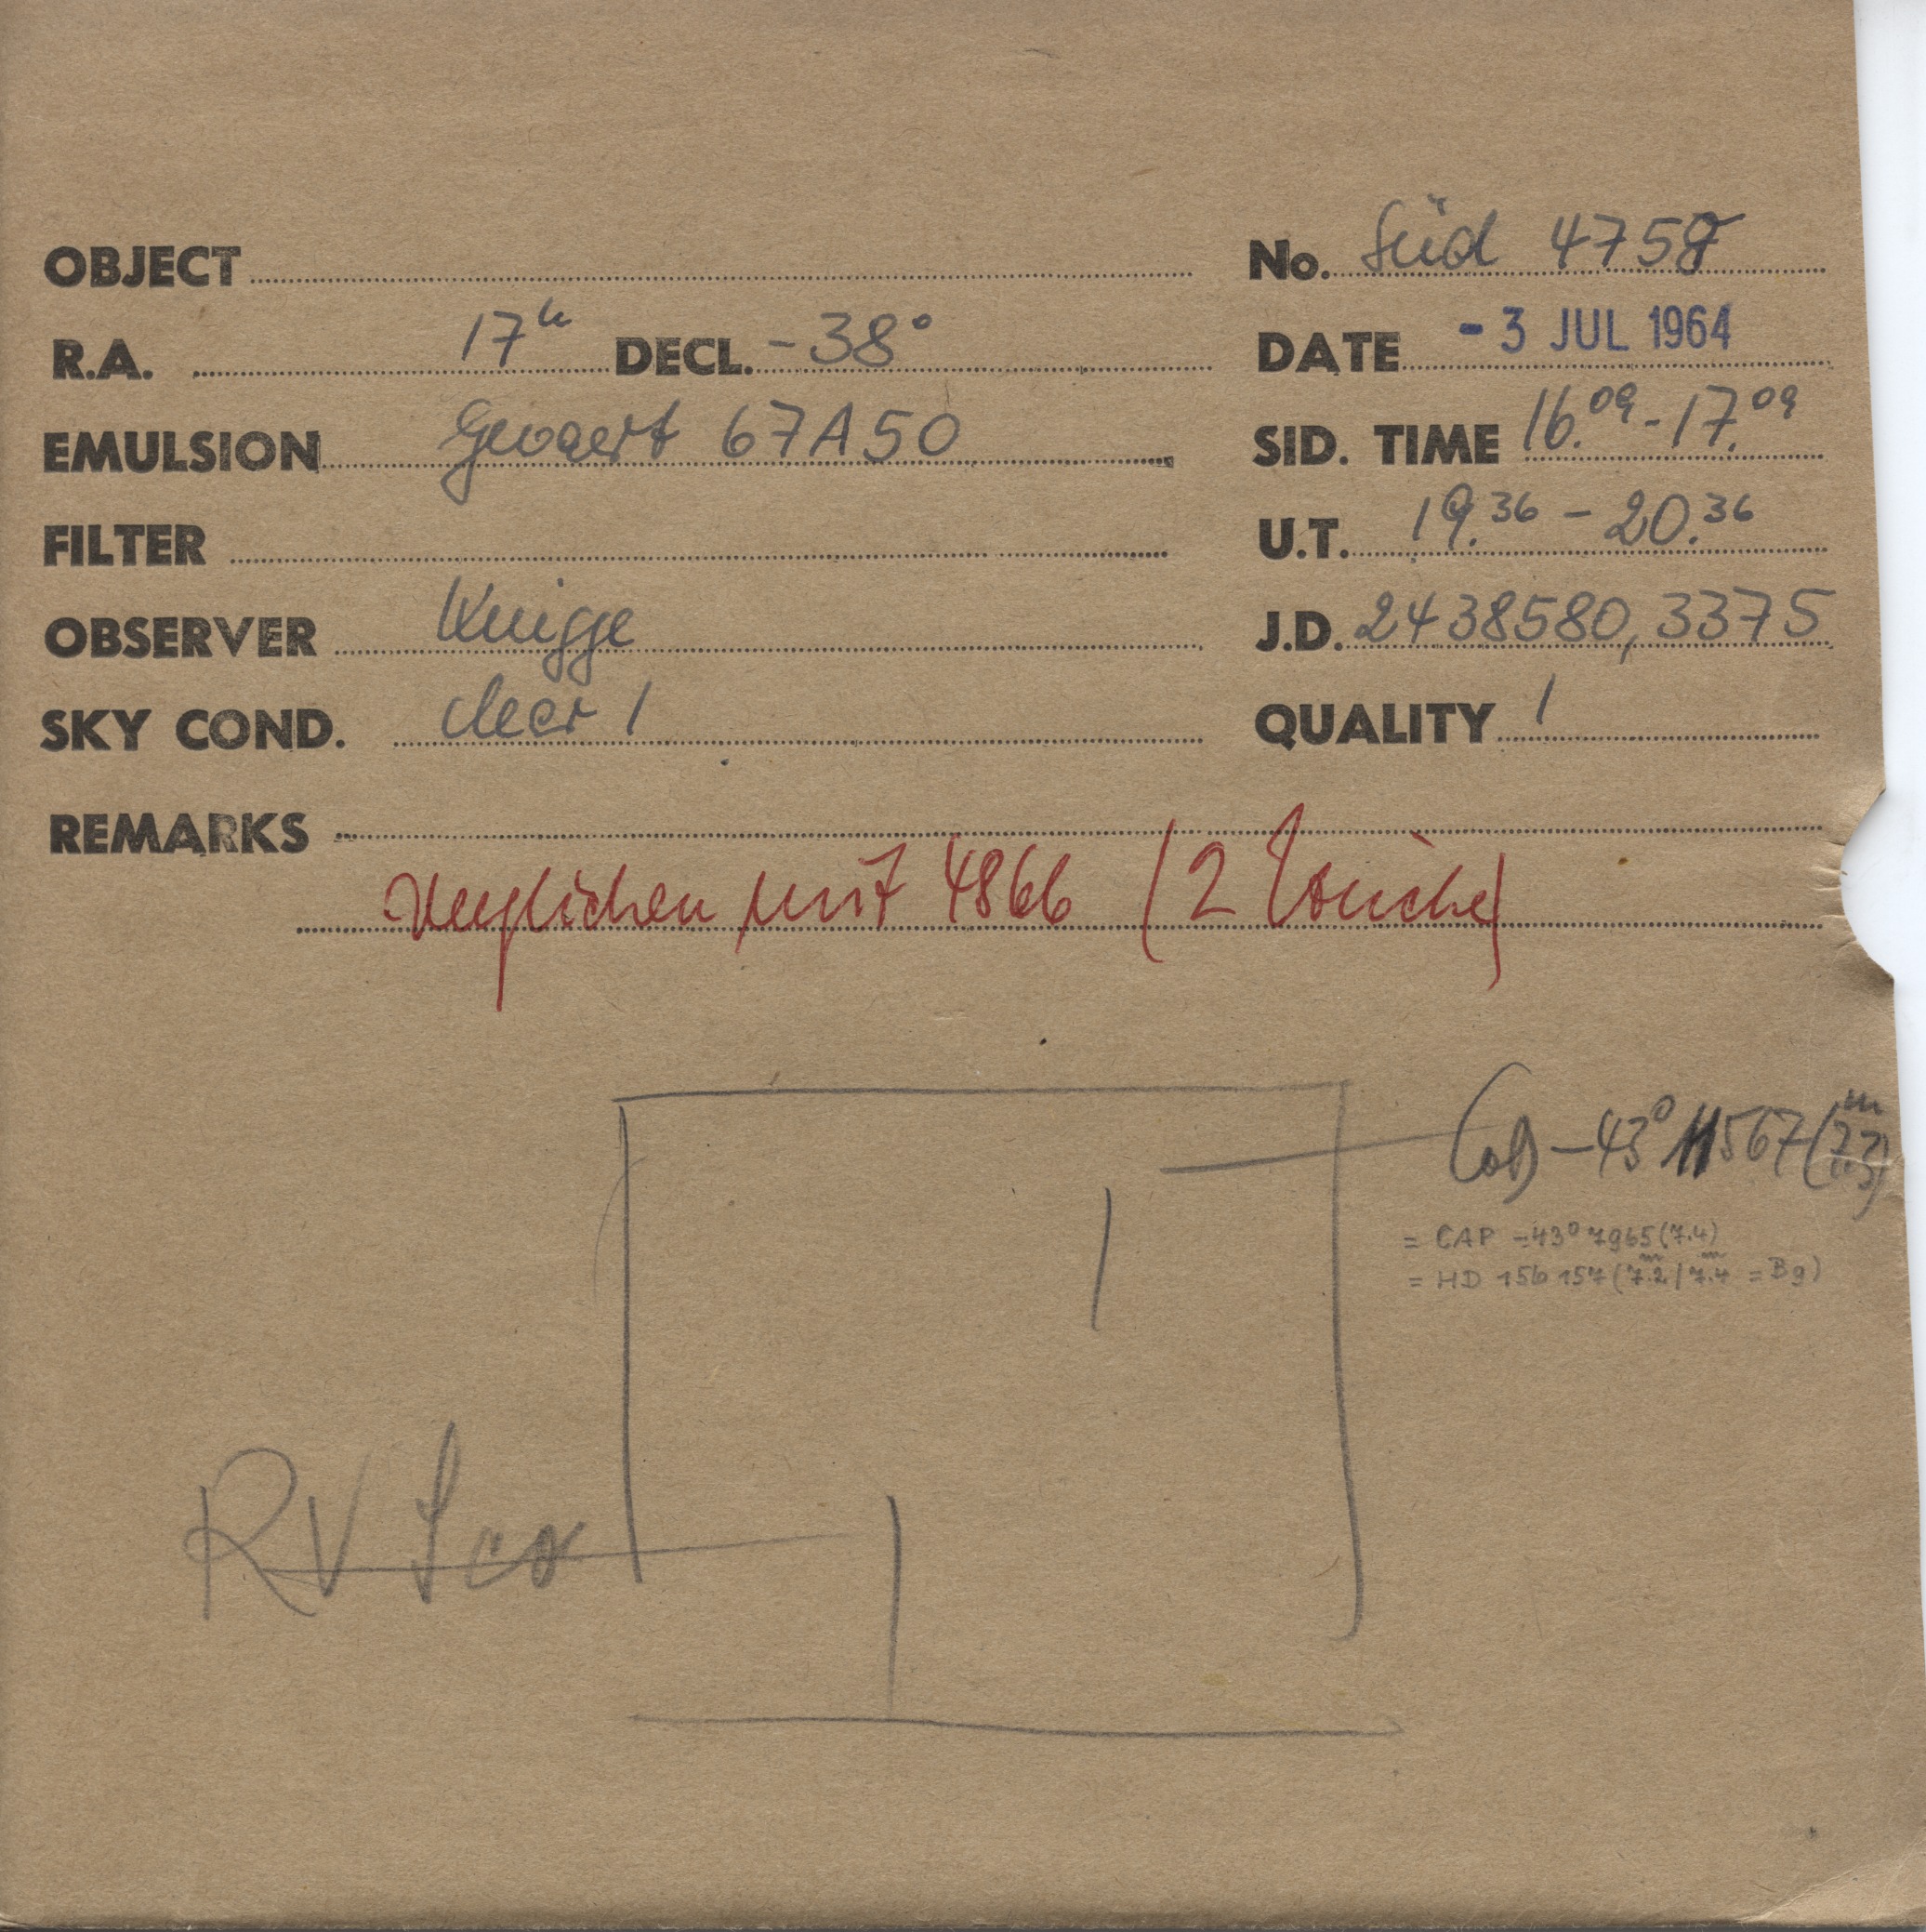 OBJECT
No. Süd 4758
R.A. 17h DECL. -38°
DATE - 3 JUL 1964
EMULSION Gevaert 67A50
SID. TIME 16.09 - 17.09
FILTER
U.T. 19.36 - 20.36
OBSERVER Knigge
J.D. 2438580,3375
SKY COND. clear 1
QUALITY 1
REMARKS
verglichen mit 4866 (2 )
CoD -43° 11567 (7.3m)
= CAP -43° 7965 (7.4)
= HD 156 157 (7.2m / 7.4m = B9)
RV Sco